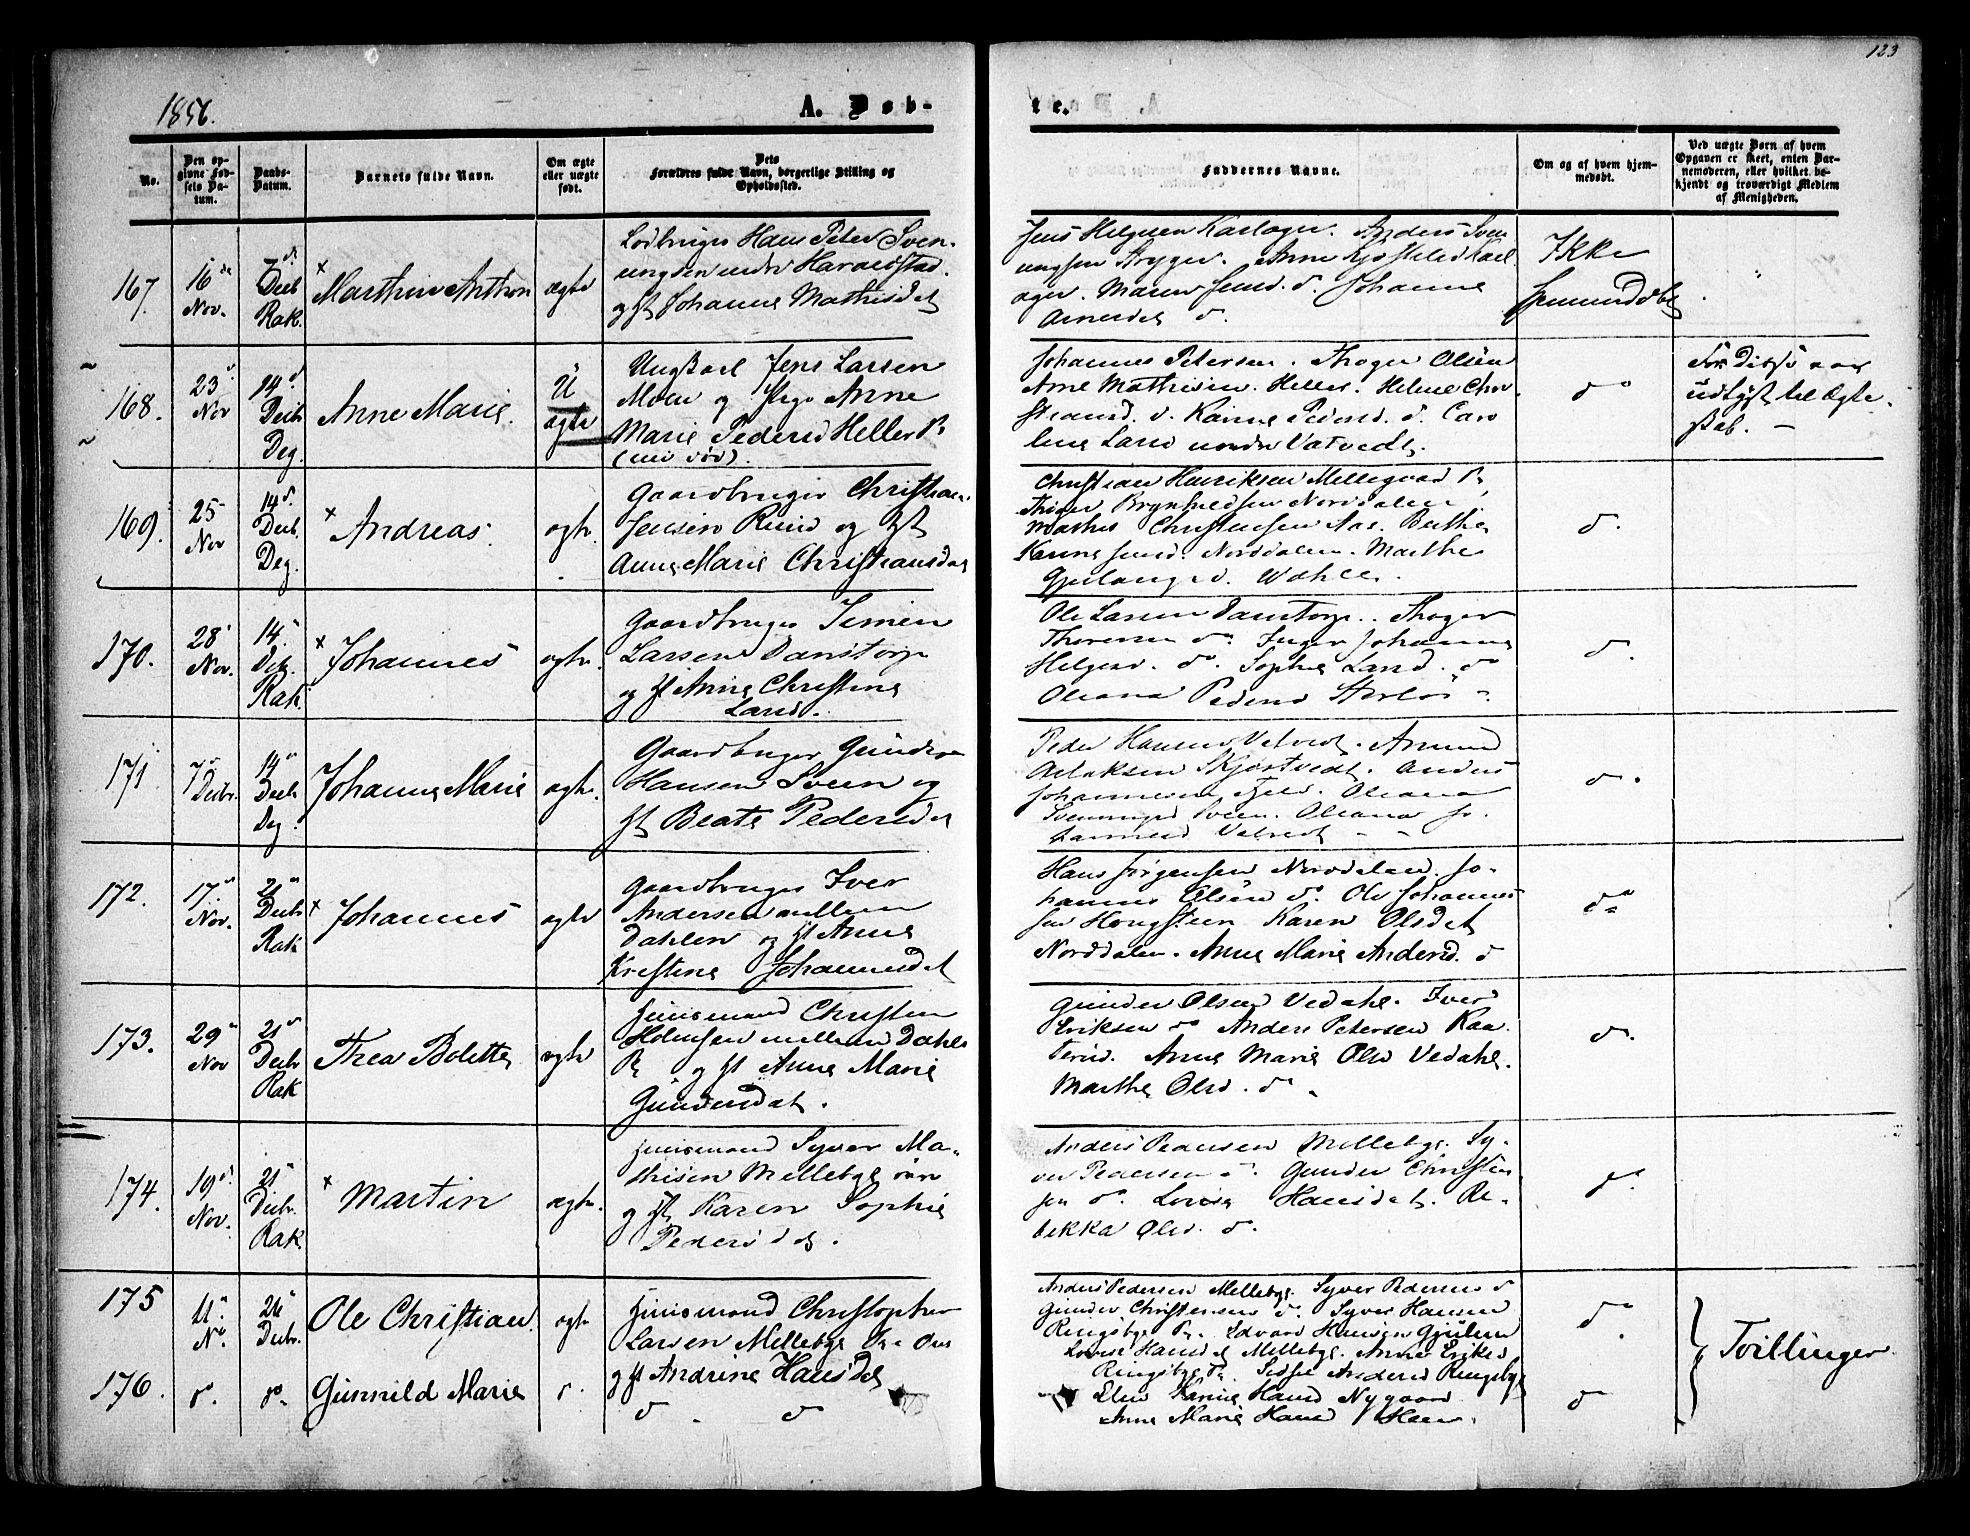 123
1856.
A. Døb-
te.
No.
Den op-
givne Fød-
sels Da-
tum.
Daabs-
Datum.
Barnets fulde Navn.
Om ægte
eller uægte
født.
Dets
Forældres fulde Navn, borgerlige Stilling og
Opholdssted.
Faddernes Navne.
Om og af hvem hjem-
medøbt.
Ved uægte Børn af hvem
Opgaven er skeet, enten Bar-
nemoderen, eller hvilket be-
kjendt og troværdigt Medlem
af Menigheden.
167.
16
Nov.
7
Decb
Rak.
Marthin Anthon
ægte
Hans Peter Sven-
ungsen nedre Haraldstad
og Johanne Mathisdat
Jens Helgesen Anders Sven
ungsen Anne
ager. Maren Jensd. do. Johanne
Arnesdat do.
Ikke
hjemmedøbt
168.
23
Nov
14
Decb.
Deg.
Anne Marie
U
ægte
Ungkarl Jens Larsen
Moen og Pige Anne
Marie Pedersd Heller
Johannes Petersen. Olsen
Arne Mathisen. Heller. Helene Chri
stiansd. do. Karine Pedersd. do. Caro
line Larsd nordre Vatvedt.
do
For Disse var
udlyst til Ægte-
skab. -
169.
25
Nov
14
Decb.
Deg.
Andreas.
ægte.
Gaardbruger Christian
Jensen Ruud og
Anne Marie Christiansdat
Christian Henriksen Mellegaard
Brynhildsen Norddalen
Mathis Christensen Aas. Berthe
Karine Jensd. Norddalen. Marthe
do.
170.
28
Nov.
14
Dcb.
Rak.
Johannes
ægte.
Gaardbruger Simen
Larsen Danstorp
og Anne Christine
Larsd.
Ole Larsen Danstorp.
Thoresen do. Inger Johanne
Helgesd. do. Sophie Larsd. do
Oleana Pedersd
do.
171
7
Decb.
14
Decb
Deg.
Johanne Marie
ægte.
Gaardbruger Gunder
Hansen Sveen og
Beate Pedersdat
Peder Hansen Vatvedt. Amund
Aslaksen Skjøstvedt. Anders
Johannesen Oleana
Svenningsd Sveen. Oleana Jo-
hannesd Vatvedt
do.
172.
17
Nov.
21
Decb
Rak
Johannes
ægte
Gaardbruger Iver
Andersen mellem
Dahlen og Anne
Kristine Johannesdat
Hans Jørgensen Norddalen. Jo-
hannes Olsen do. Ole Johannes
sen Hougsteen Karen Olsdat
Norddalen. Anne Marie Andersd. do
do
173.
29
Nov
21
Decb
Rak
Thea Bolette
ægte
Huusmand Christen
Helmesen mellem Dahle
og Anne Marie
Gundersdat.
Gunder Olsen Vedahl. Iver
Eriksen do Anders Petersen Kaa
terud. Anne Marie Olsd Vedahl.
Marthe Olsd. do
do.
174.
19
Nov.
21
Decb.
Rak
Martin
ægte.
Huusmand Syver Ma-
thisen Mellebye
og Karen Sophie
Pedersdat.
Anders Pedersen Mellebye. Sy-
ver Pedersen do. Gunder Christen
sen do. Lovise Hansdat. Re-
bekka Olsd. do.
do.
175
11
No
26
Decbr.
Ole Christian
ægte
Huusmand Christopher
Larsen Mellebye
og Andrine Hansdat
Anders Pedersen Mellebye. Syver Pedersen do
Gunder Christensen do. Syver Hansen
Ringsbye Edvard Hansen
Lovise Hansdat Mellebye. Anne Eriksd
Ringsbye Andersd Ringsbye
do
Tvillinger.
176.
do.
do.
Gunnild Marie
do.
do. do
Karine Hansd Nygaard
Anne Marie Hansd
do